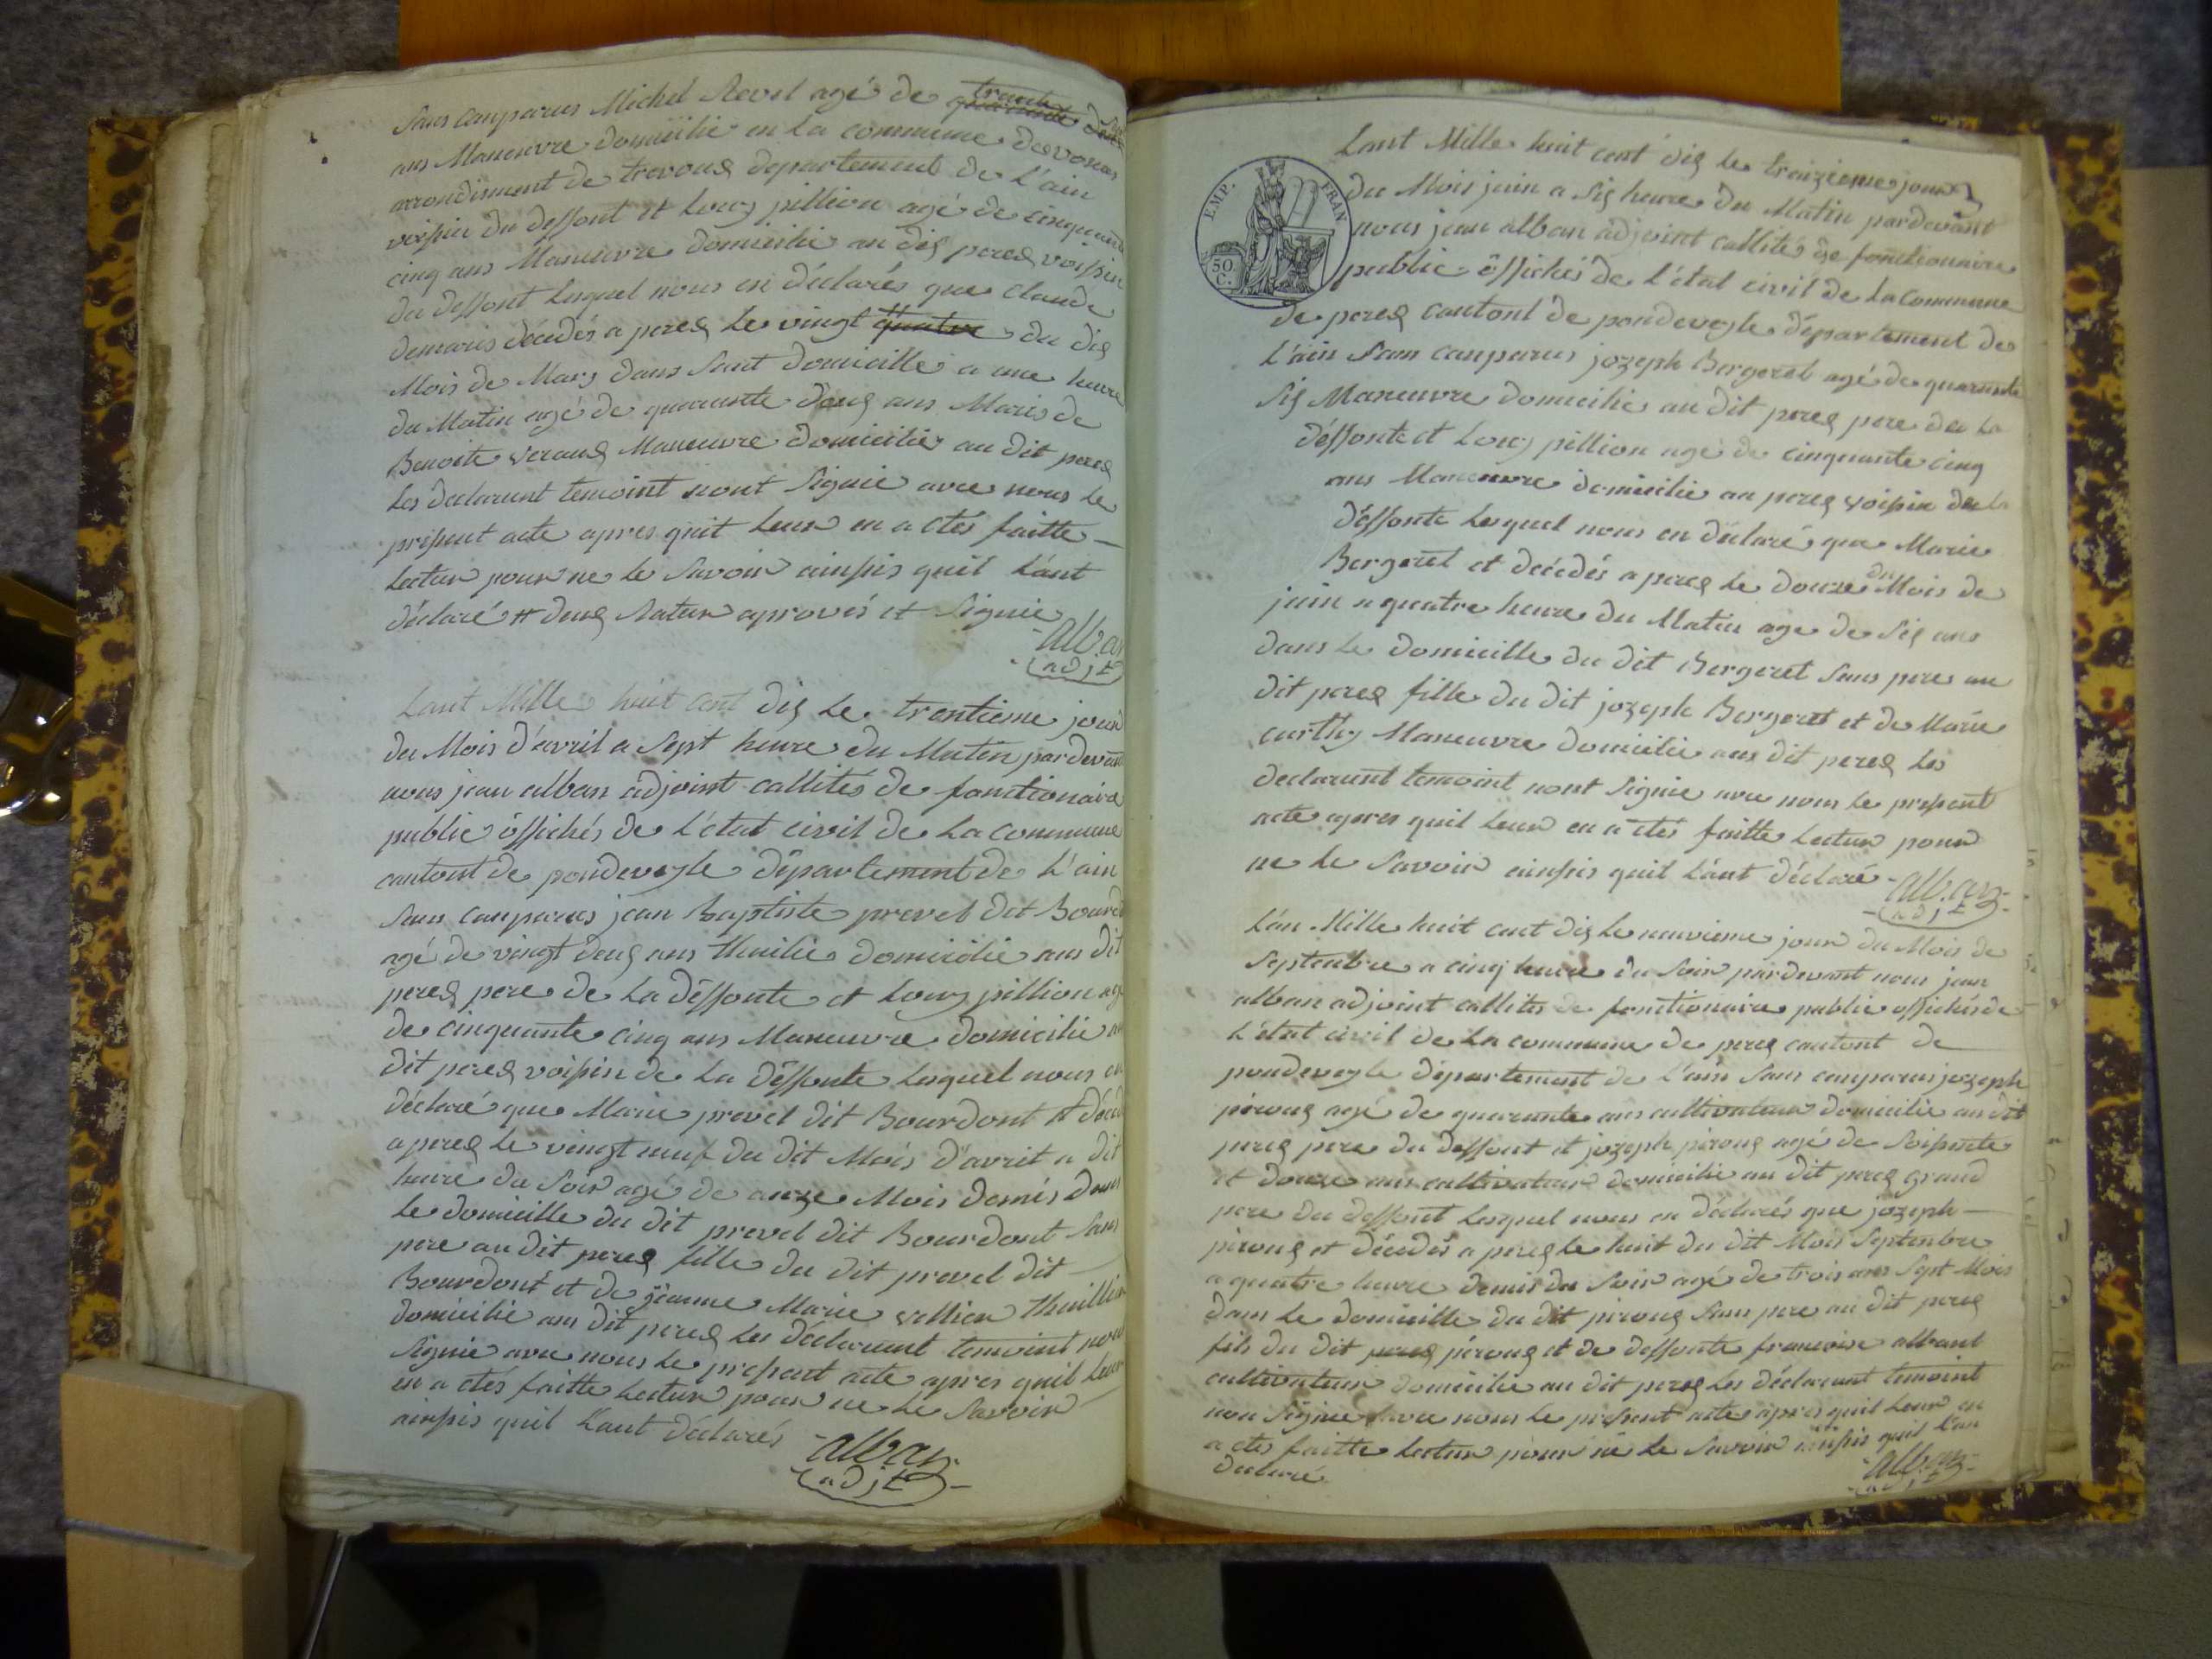 Sans conparus Michel Revel agé de trante
ans Maneuvre domicilié en la commune de vonas
arrondisment de trevoux departement de l'ain
voissin du deffont et Louis pillion agé de cinquante
cinq ans Maneuvre domicilié au dis perex voissin
du deffont lesquel nous en déclarés que Claude
demaris décédés a perex le vingt quatre du dis
Mois de Mars dans Sont domicille a une heure
du Matin agé de quarante deux ans Maris de
Benoite veraux Maneuvre domicilié au dit perex
les declarant temoint nont Signié avec nous le
present acte apres quit leur en a etés faitte
Lectur pour ne le Savoir ainssis quil Lánt
déclaré # deux Ratur aprovés et Signié
alban
adjt
Lant Mille huit cent dix le trentieme jour
du Mois d'avril a Sept heure du Matin pardevant
nous jean alban adjoint callités de fonctionaire
public offichés de L'état civil de la commune
cantont de pondeveyle département de L'ain
Sans conparus jean Baptiste prevel dit Bourd
agé de vingt deux ans thuilié domicilié aus dit
perex pere de la déffonte et Louis pillion agé
de cinquante cinq ans Maneuvre domicilié au
dit perex voissin de la déffonte lesquel nous en
déclaré que Marie prevel dit Bourdont et décéd
a perex le vingt neuf du dit Mois d'avrit a dit
heure du Soir agé de onze Mois demis dans
le domicille du dit prevel dit Bourdont Sans
pere au dit perex fille du dit prevel dit
Bourdont et de jeanne Marie vellien thuillier
domicilié aus dit perex les déclarant temoint nont
Signié avec nous le present acte apres quil leur
en a etés faitte Lectur pour ne le Savoir
ainssis quil Lant déclarés
alban
adjt
EMP. FRAN
50
C.
Lant Mille huit cent dix le traizieme jour
du Mois juin a Six heure du Matin pardevant
nous jean alban adjoint callités de fonctionaire
public offichés de L'état civil de la Commune
de perex cantont de pondeveyle département de
L'ain Sans conparus jozeph Bergeret agé de quarante
Six Maneuvre domicilié au dit perex pere de la
déffonte et Louis pillion agé de cinquante cinq
ans Maneuvre domicilié au perex voissin de la
déffonte lesquel nous en déclaré que Marie
Bergeret et décédés a perex le douze du Mois de
juin a quatre heure du Matin age de Six ans
dans le domicille du dit Bergeret Sans pere au
dit perex fille du dit jozeph Bergeret et de Marie
curthy Maneuvre domicilié aus dit perex les
declarant temoint nont Signie avec nous le present
acte apres quil leur en a etés faitte Lectur pour
ne le Savoir ainssis quil Lánt déclaré
alban
adjt
Lan Mille huit cent dix le neuvieme jour du Mois de
Septenbre a cinq heure du Soir pardevant nous jean
alban adjoint callités de fonctionaire public offichés de
L'état civil de la commune de perex cantont de
pondeveyle département de L'ain Sans conparus jozeph
piroux agé de quarante ans cultivateur domicilié au dit
perex pere du deffont et jozeph piroux agé de Soissante
et douze ans cultivateur domicilié au dit perex grand
pere du deffont lesquel nous en déclarés que jozeph
piroux et décédés a perex le huit du dit Mois Septenbre
a quatre heure demis du Soir agé de trois ans Sept Mois
dans le domicille du dit piroux Sans pere au dit perex
fils du dit perex piroux et de deffonte francoise albant
cultivateur domicilié au dit perex les déclarant temoint
non Signie avec nous le present acte apres quil leur en
a etés faitte Lectur pour ne le Savoir ainssis quil Lan
déclaré
alban
adjt